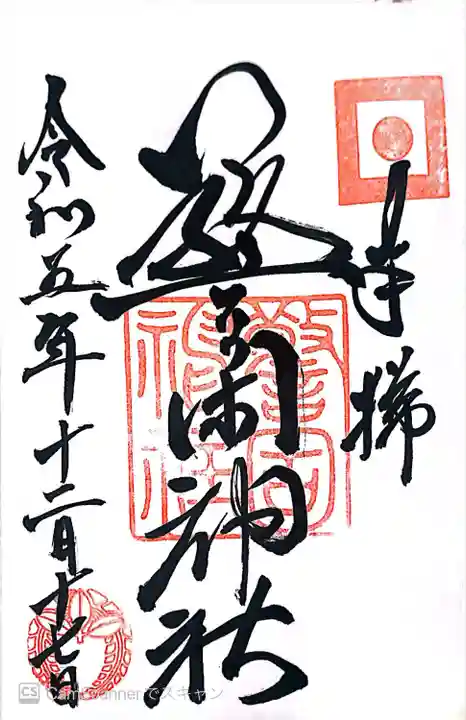 奉拝
警固神社
令和五年十二月十七日
CS CamScannerでスキャン